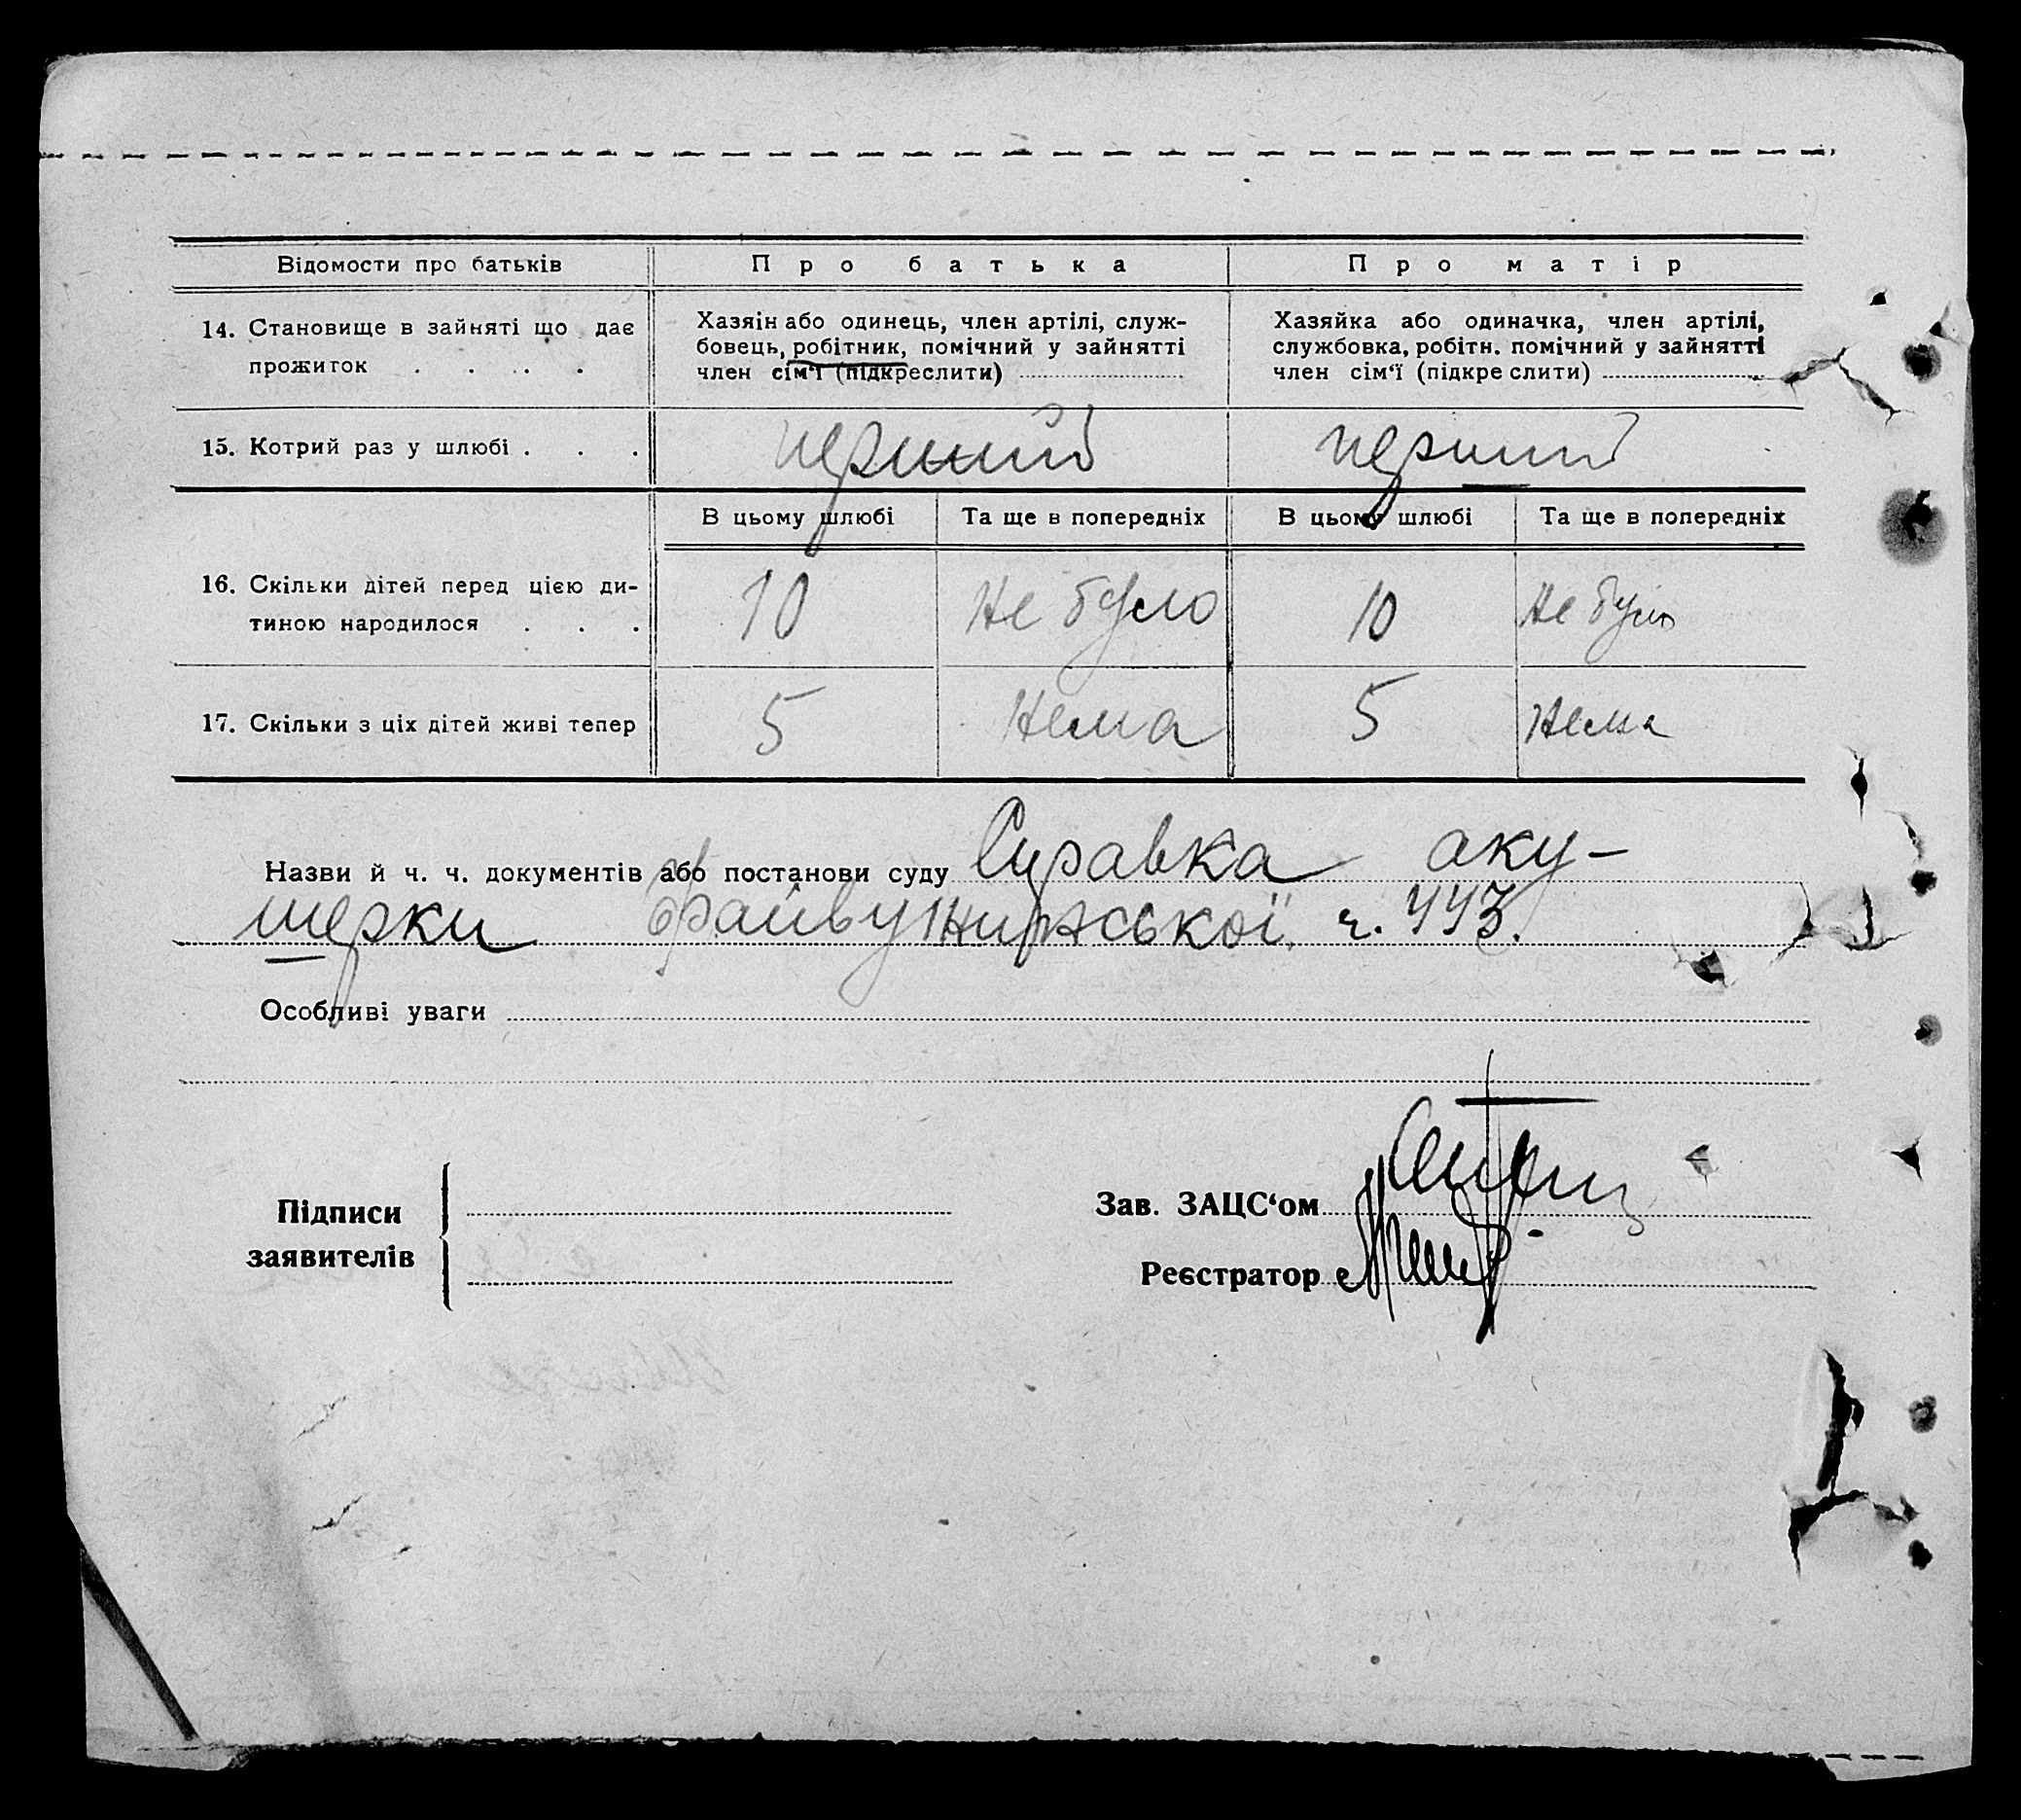 Відомости про батьків Про батька Про матір
14. Становище в зайняті що дає
прожиток . . . .
Хазяін або одинець, член артілі, служ-
бовець, робітник, помічний у зайнятті
член сім'ї (підкреслити)
Хазяйка або одиначка, член артілі,
службовка, робітн. помічний у зайнятті
член сім'ї (підкреслити)
15. Котрий раз у шлюбі . . . перший перший
В цьому шлюбі Та ще в попередніх В цьому шлюбі Та ще в попередніх
16. Скільки дітей перед цією ди-
тиною народилося . . .
10 Не було 10 Не було
17. Скільки з ціх дітей живі тепер 5 Нема 5 Нема
Назви й ч. ч. документів або постанови суду Справка аку-
шерки ч. 443.
Особливі уваги
Підписи
заявителів
Зав. ЗАЦС'ом
Реєстратор